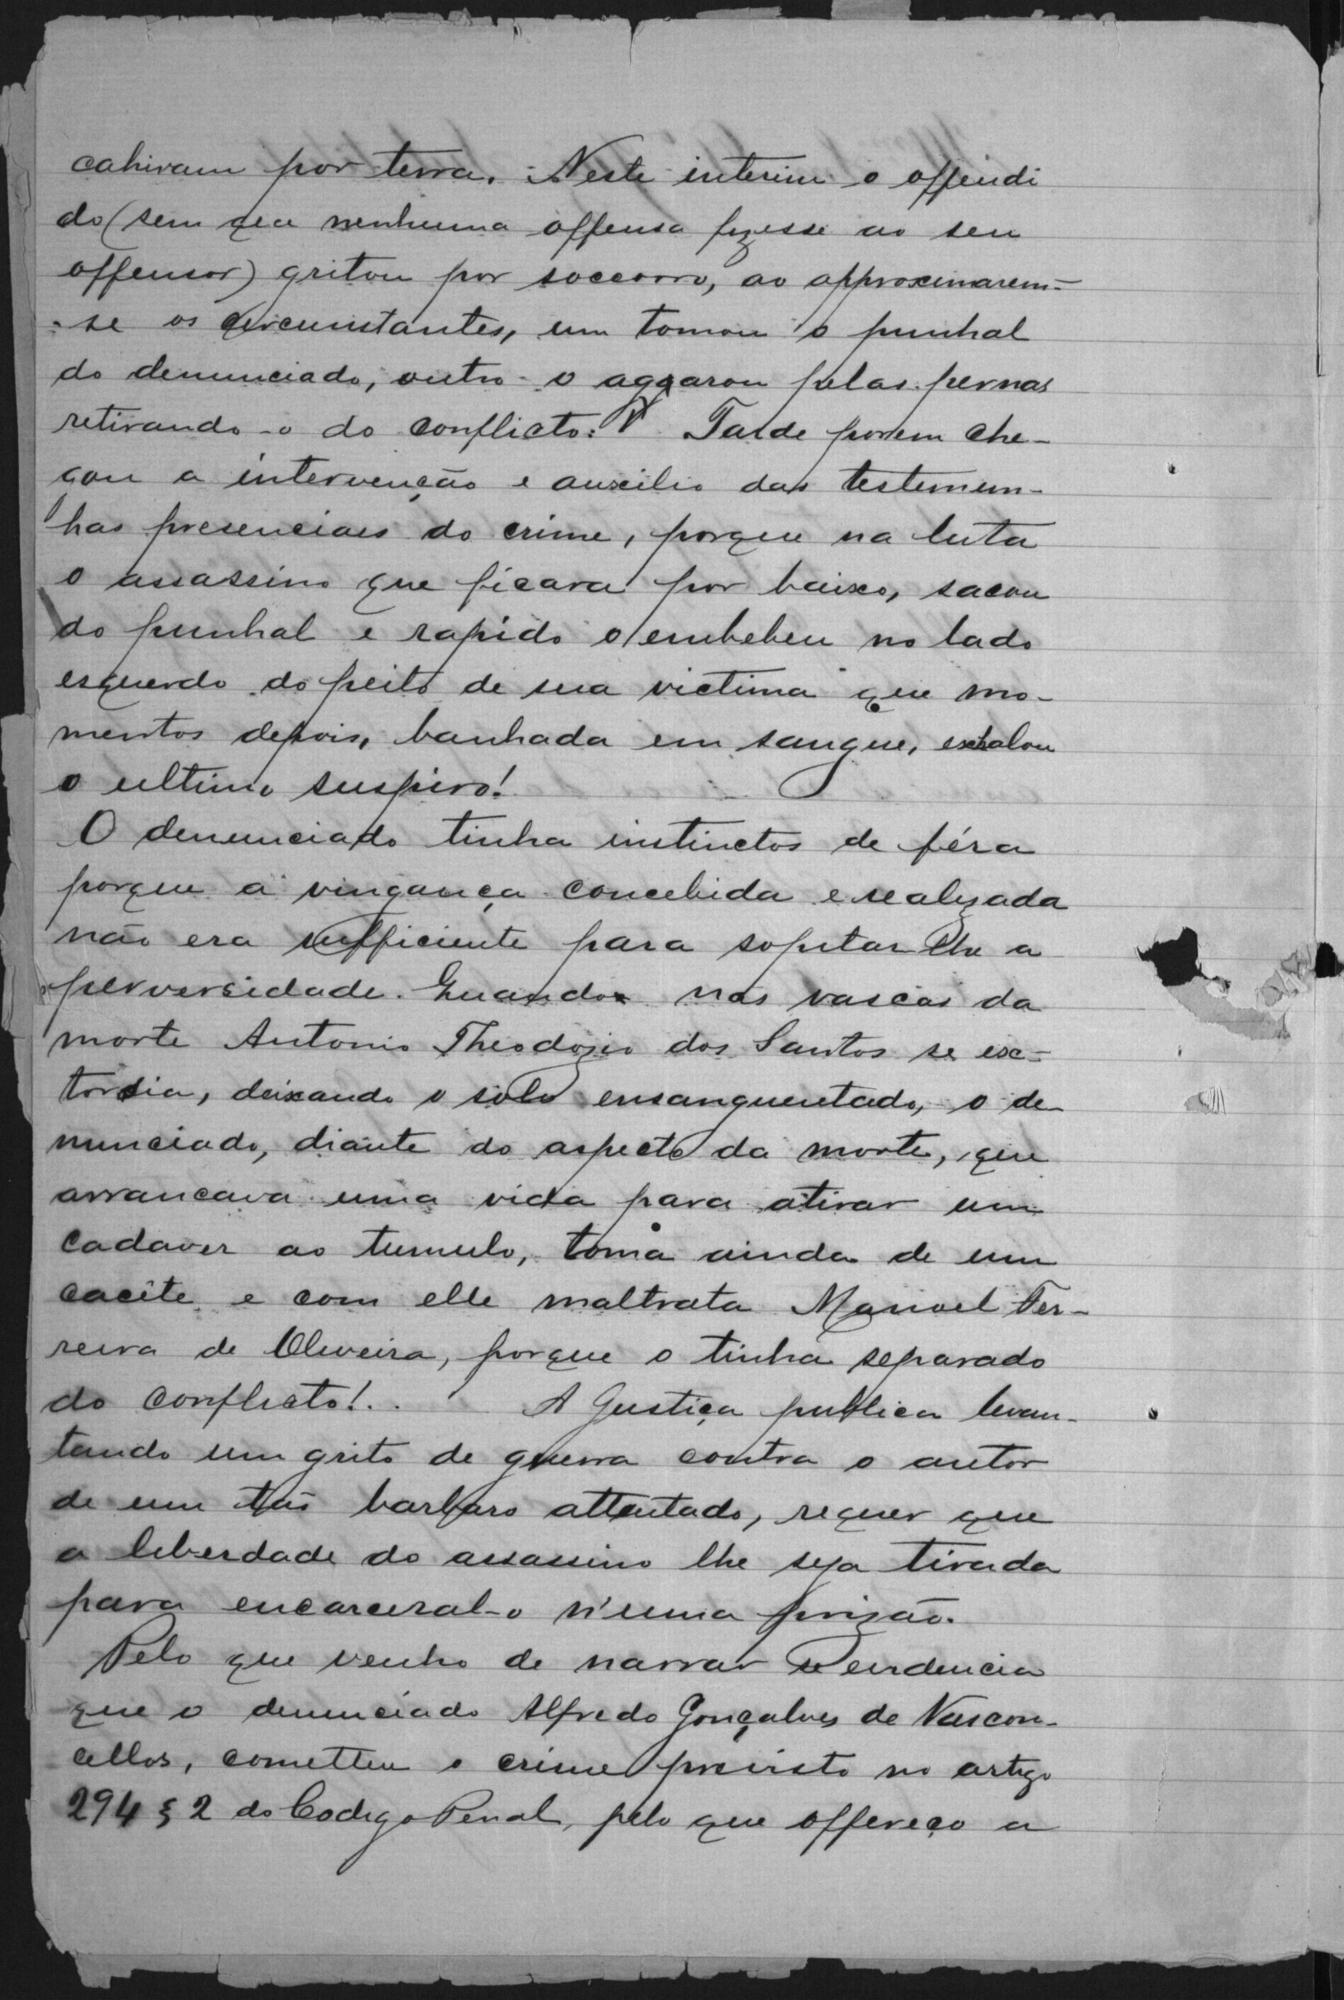 cahiram por terra. Neste interim o offendi
do (sem que nenhuma offensa fizesse ao seu
offensor) gritou por soccorro, ao approximarem-
-se os circunstantes, um tomou o punhal
do denunciado, outro o agarou pelas pernas
retirando-o do conflicto. Tarde porem che-
gou a intervenção e auxilio das testemun-
has presenciaes do crime, porque na luta
o assassino que ficara por baixo, sacou
do punhal e rapido o embebeu no lado
esquerdo do peito de sua victima que mo-
mentos depois, banhada em sangue, exhalou
o ultimo suspiro!
O denunciado tinha instinctos de féra
porque a vingança concebida e realizada
não era sufficiente para sopitar lhe a
perversidade. Quando nas vascas da
morte Antonio Theodozio dos Santos se ex-
torcia, deixando o solo ensanguentado, o de
nunciado, diante do aspecto da morte, que
arrancava uma vida para atirar um
cadaver ao tumulo, toma ainda de um
cacête e com elle maltrata Manoel Fer-
reira de Oliveira, porque o tinha separado
do conflicto!.. A Justiça publica levan-
tando um grito de guerra contra o autor
de um tão barbaro attentado, requer que
a liberdade do assassino lhe seja tirada
para encarceral-o n'uma prizão.
Pelo que venho de narrar se evidencia
que o denunciado Alfredo Gonçalves de Vascon-
cellos, cometteu o crime previsto no artigo
294 § 2 do Codigo Penal, pelo que offereço a